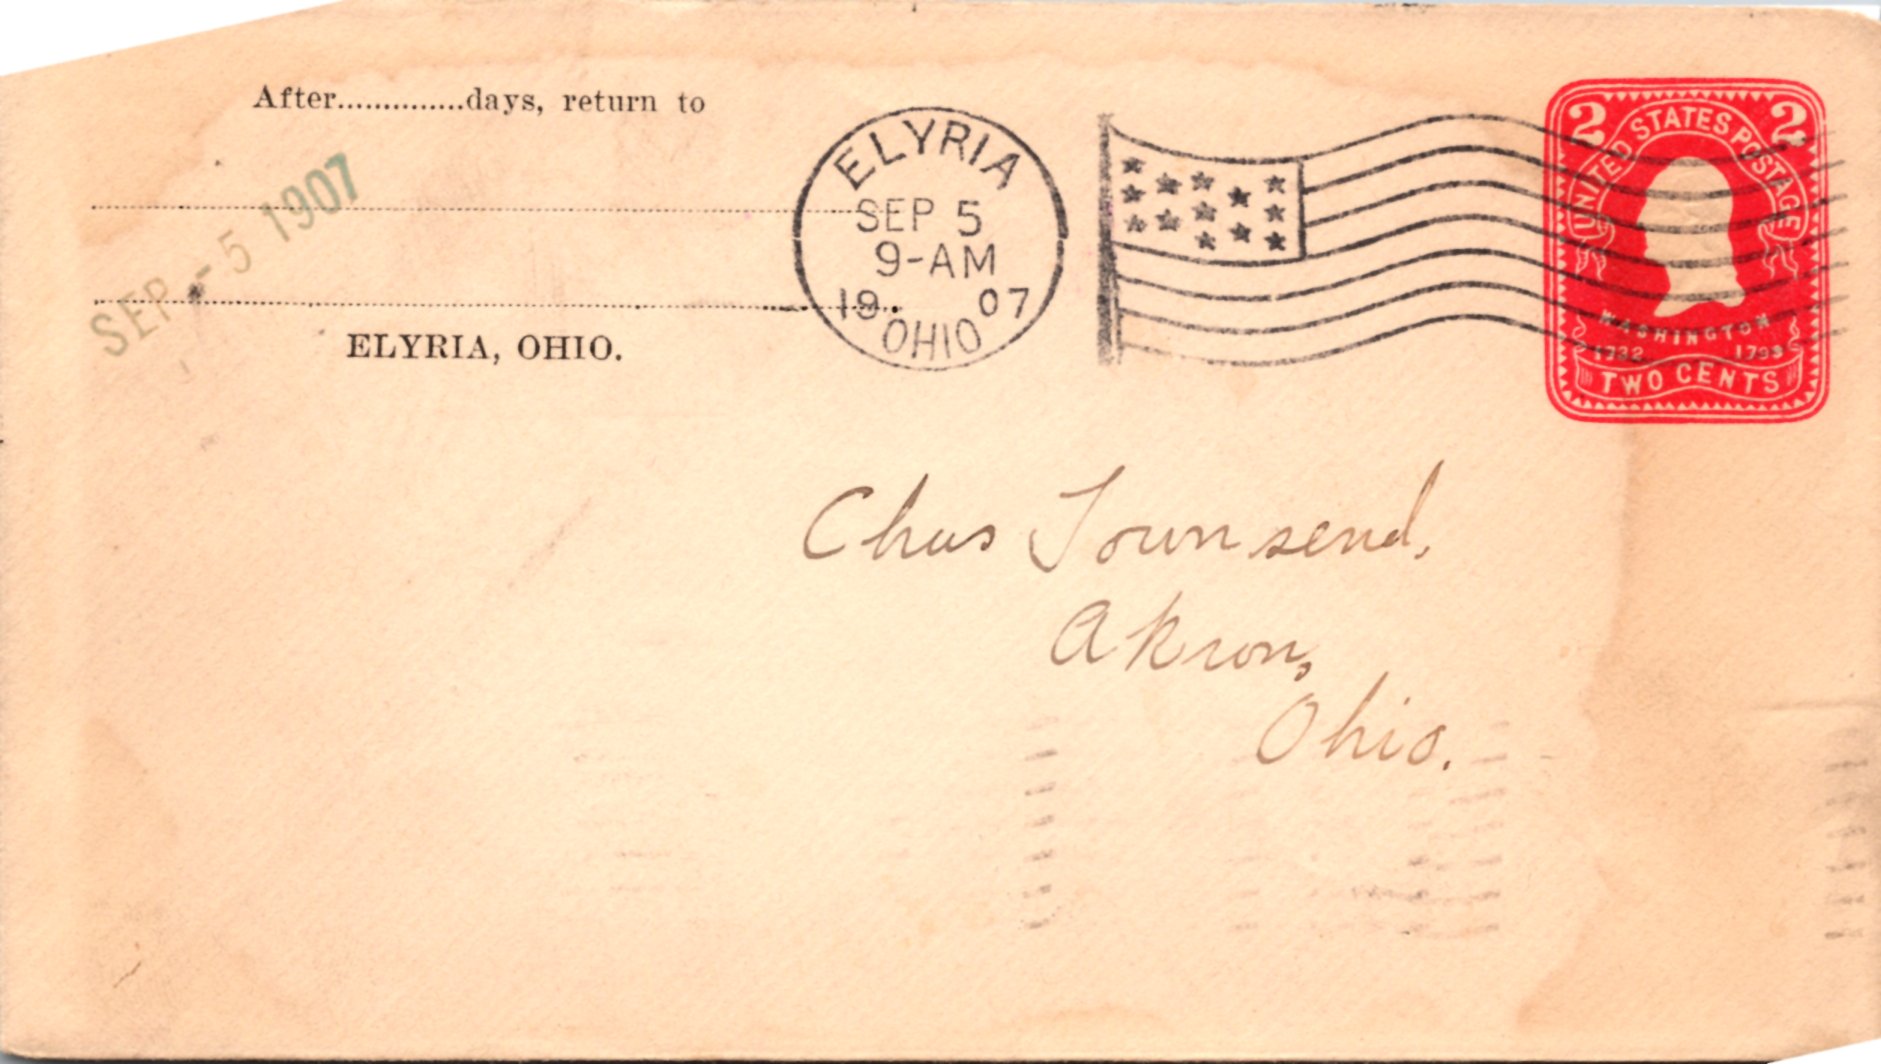 After..............days, return to
SEP - 5 1907
ELYRIA, OHIO.
ELYRIA
SEP 5
9-AM
19 07
OHIO
2 2
UNITED STATES POSTAGE
WASHINGTON
1732 1799
TWO CENTS
Chas Townsend,
Akron,
Ohio.